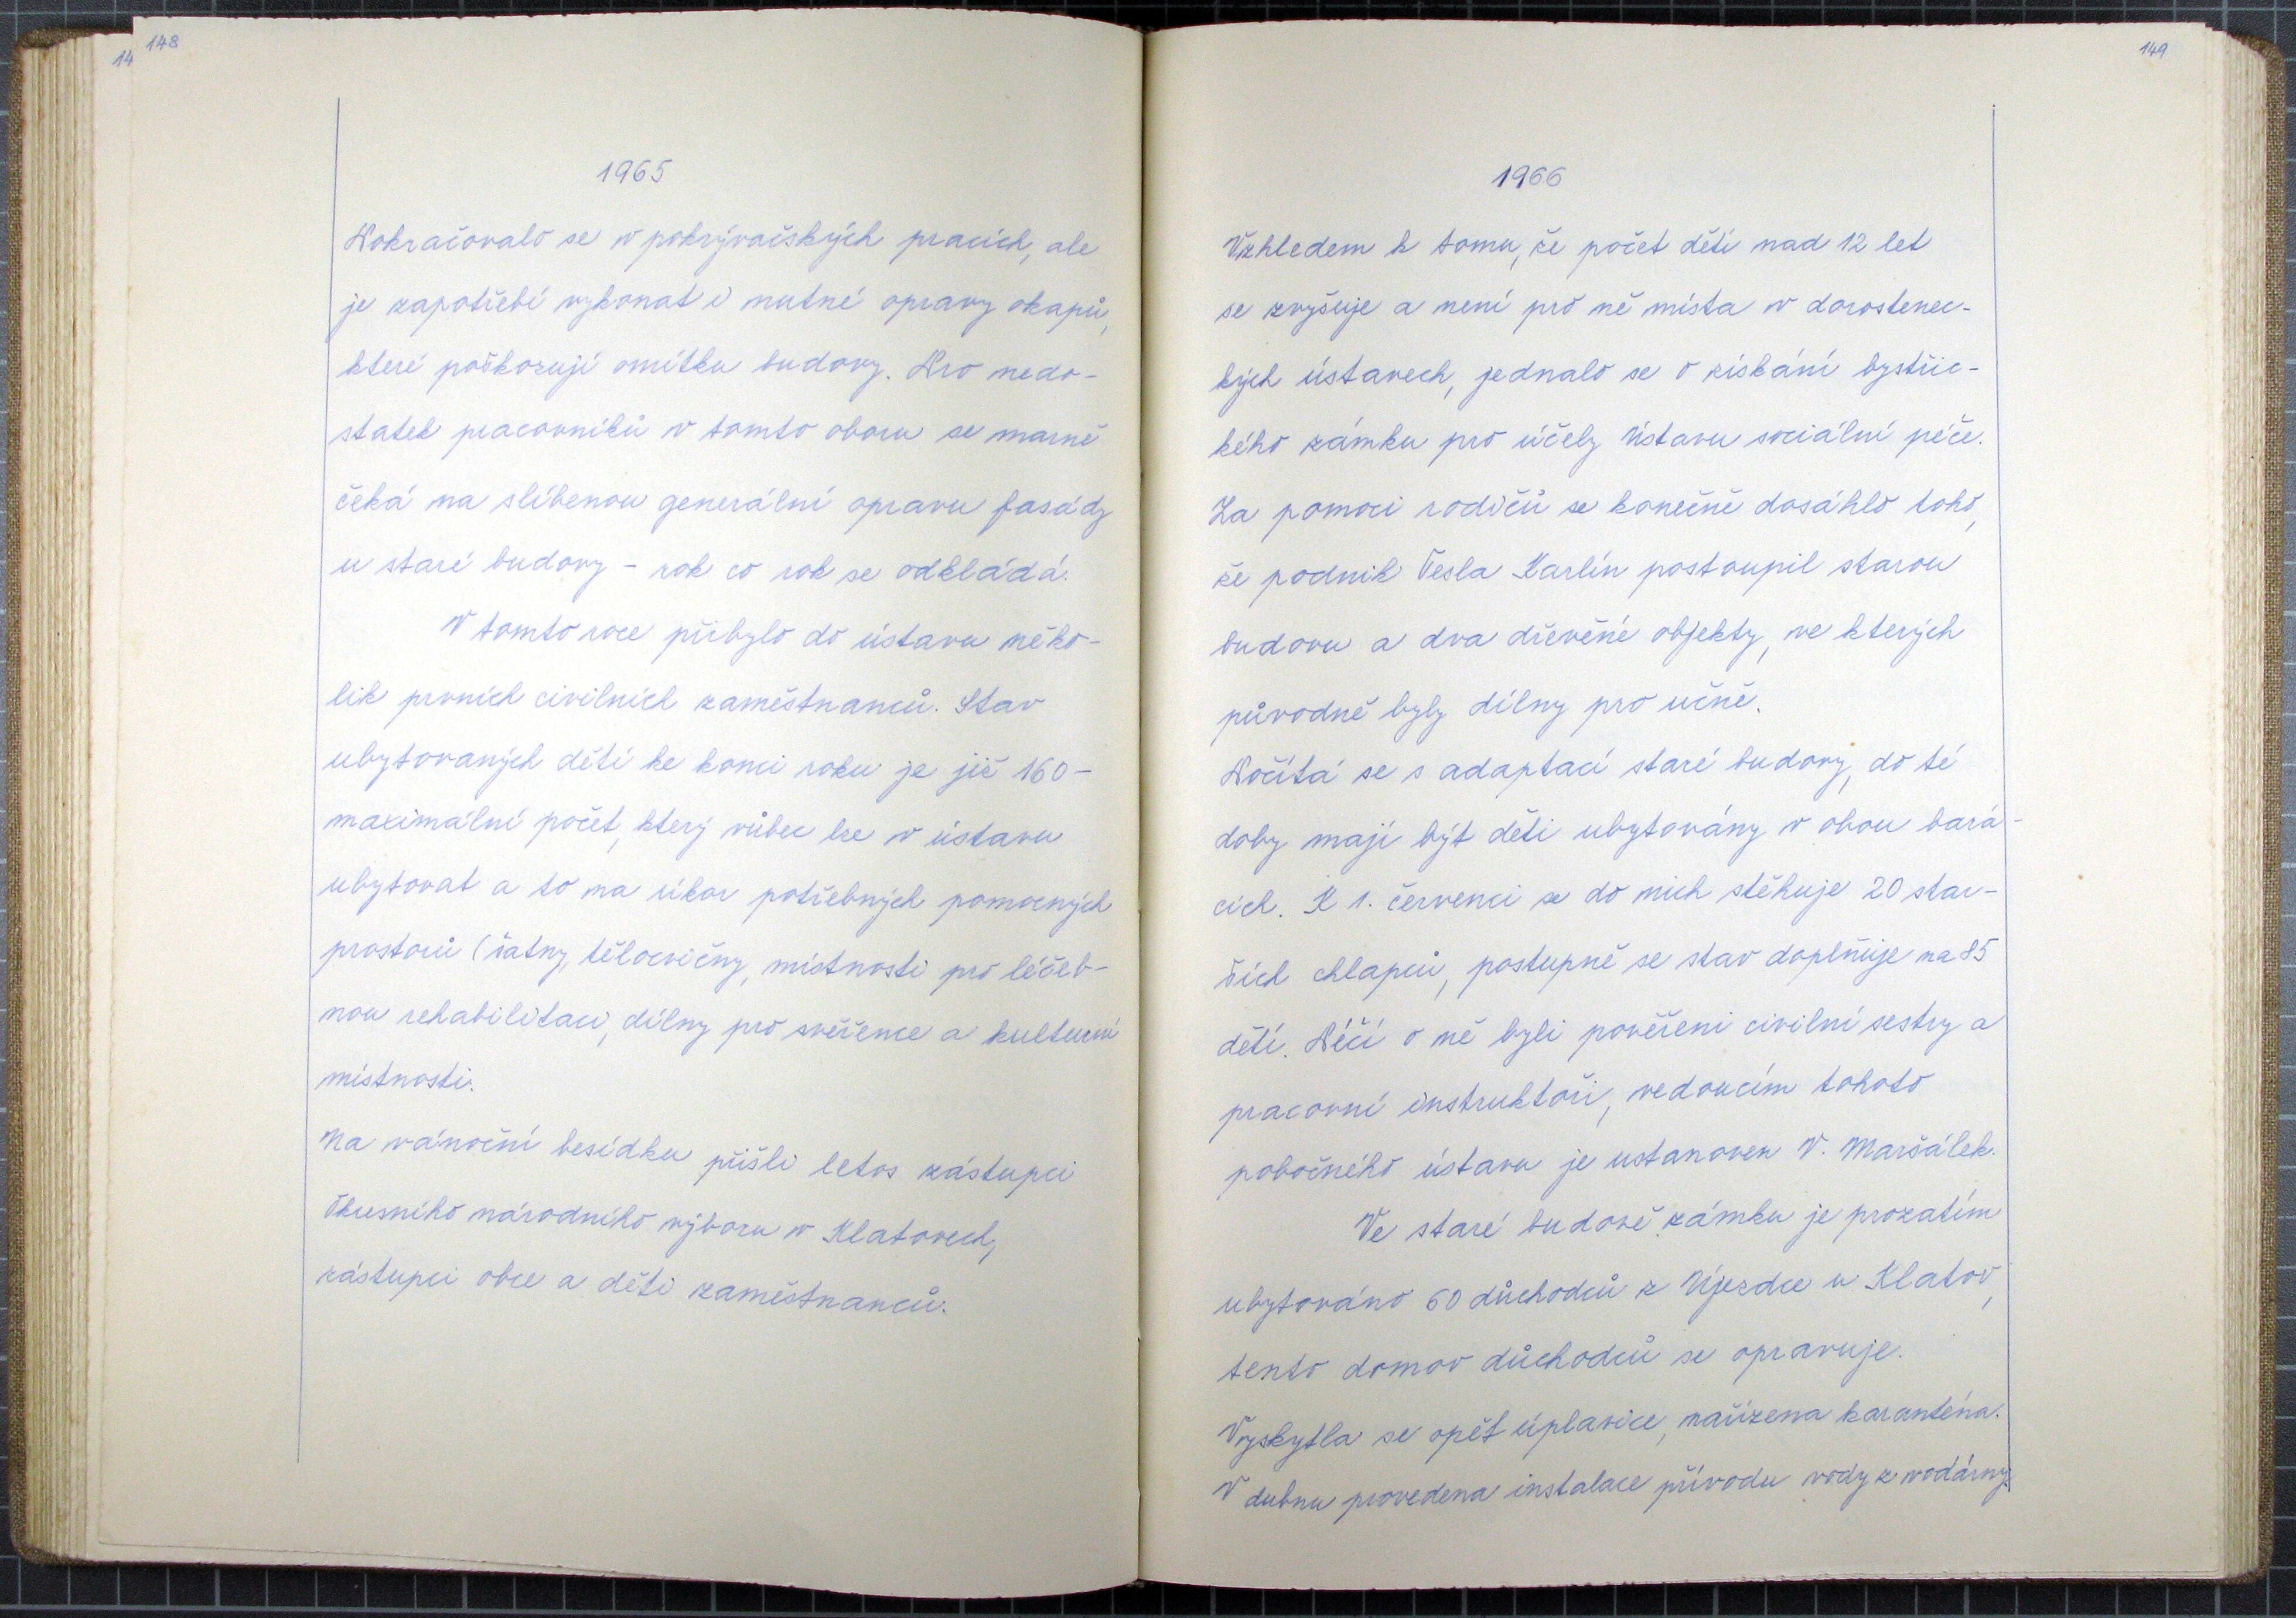 148
14
1965
Pokračovalo se v pokrývačských pracích, ale
je zapotřebí vykonat i nutné opravy okapů,
které poškozují omítku budovy. Pro nedo-
statek pracovníků v tomto oboru se marně
čeká na slíbenou generální opravu fasády
u staré budovy - rok co rok se odkládá.
V tomto roce přibylo do ústavu něko-
lik prvních civilních zaměstnanců. Stav
ubytovaných dětí ke konci roku je již 160 -
maximální počet, který vůbec lze v ústavu
ubytovat a to na úkor potřebných pomocných
prostorů (šatny, tělocvičny, místnosti pro léčeb-
nou rehabilitaci, dílny pro svěřence a kulturní
místnosti.
Na vánoční besídku přišli letos zástupci
Okresního národního výboru v Klatovech,
zástupci obce a děti zaměstnanců.
149
1966
Vzhledem k tomu, že počet dětí nad 12 let
se zvyšuje a není pro ně místa v dorostenec-
kých ústavech, jednalo se o získání bystřic-
kého zámku pro účely Ústavu sociální péče.
Za pomoci rodičů se konečně dosáhlo toho,
že podnik Tesla Karlín postoupil starou
budovu a dva dřevěné objekty, ve kterých
původně byly dílny pro učně.
Počítá se s adaptací staré budovy, do té
doby mají být děti ubytovány v obou bará-
cích. K 1. červenci se do nich stěhuje 20 star-
ších chlapců, postupně se stav doplňuje na 85
dětí. Péčí o ně byli pověřeni civilní sestry a
pracovní instruktoři, vedoucím tohoto
pobočného ústavu je ustanoven V. Maršálek.
Ve staré budově zámku je prozatím
ubytováno 60 důchodců z Újezdce u Klatov,
tento domov důchodců se opravuje.
Vyskytla se opět úplavice, nařízena karanténa.
V dubnu provedena instalace přívodu vody z vodárny